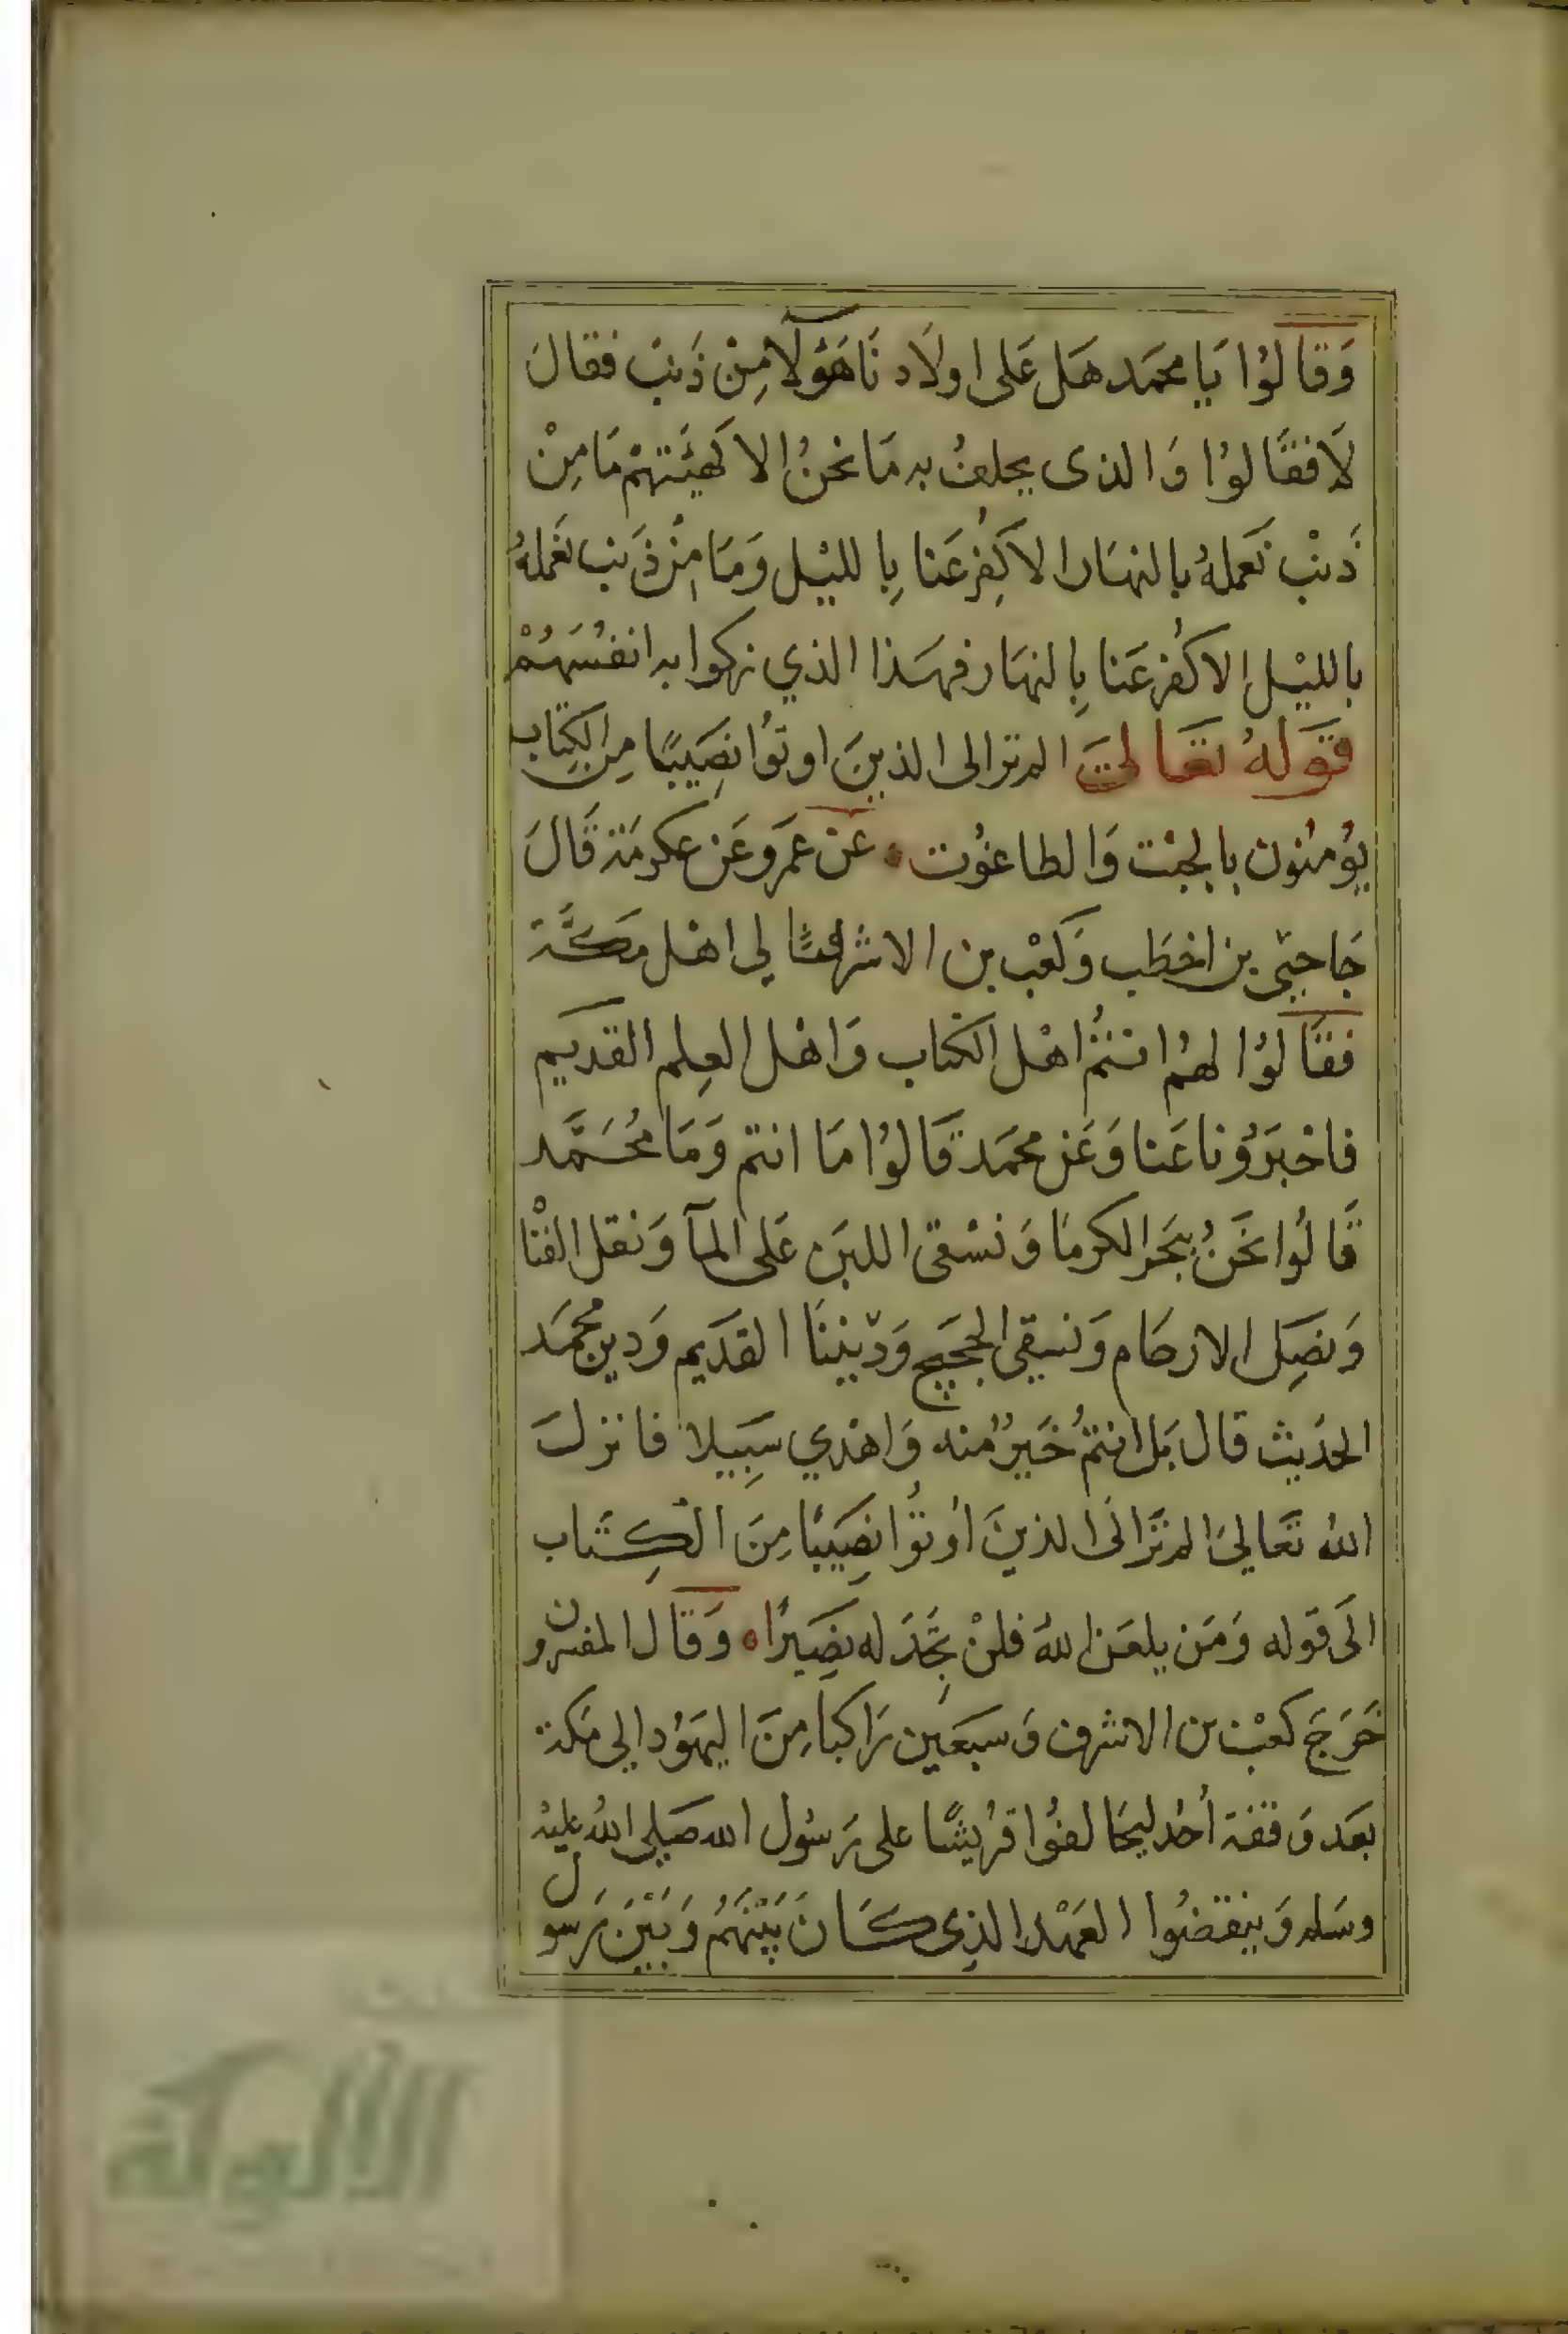 وَقالوُا يَا محمَد هَل عَلى اولَاد نَا هَؤلآ مِنْ ذَنبْ فقالَ
لَا فقَالوُا وَالذى يحلفُ به مَا نحنُ الا كَهيَئتهمْ مَا مِنْ
ذَنبْ نَعملهُ بالنهَار الا كُفِرعَنا بِالليْل وَمَا مِنْ ذَنب نعَملهُ
بالليْل الا كُفرعَنا بِالنهَار فهَذا الذي زكوا به انفسُهُمْ
قوَلهُ تعَالىَ الم تر الى الذينَ اوتوُا نصِيَبًا مِن الكِتاب
يؤمنوُن بالجبْت وَالطاغوُت عَن عمَرو عَن عكرمَة قَالَ
جَا حيّي بن اخطَب وَكعْب بن الاشرف الي اهْل مَكَّة
فقَالوُا لهمُ انتمُ اهْل الكتاب وَاهْل العِلم القديَم
فاخبَروُنا عَنا وَعَن محمَد قَالوُا مَا انتم وَمَا محُمَّد
قَالوُا نحَنُ ننحَر الكرمَا وَنسْقى اللبَن عَلى المآ وَنفك الغْنا
وَنصِل الارحَام وَنسِقى الحجَيج وَدّيننَا القديَم وَدين محمَد
الحدَيث قال بَل انتمُ خَيرٌ منه وَاهْدي سَبِيلا فانزلَ
اللهُ تَعَاليَ الم تَرَ الىَ الذينَ اوُتوُا نصِيَبًا مِنَ الكِتَاب
الىَ قوله وَمَن يلعَن اللهُ فلنْ تجِدَ له نصَيرًا وَقال المفسرون
خَرجَ كعْبْ بن الاشرف وَسبعَين رَاكبا مِنَ اليهَوُد الي مَكة
بعَد وَقعَة أحُد ليحَالفوُا قرُيشًا على رَسُول الله صَلي اللهُ عليْهُ
وسَلم وَينقضُوا العَهْد الذِى كَانَ بَيْنَهمُ وَبَيْنَ رَسول